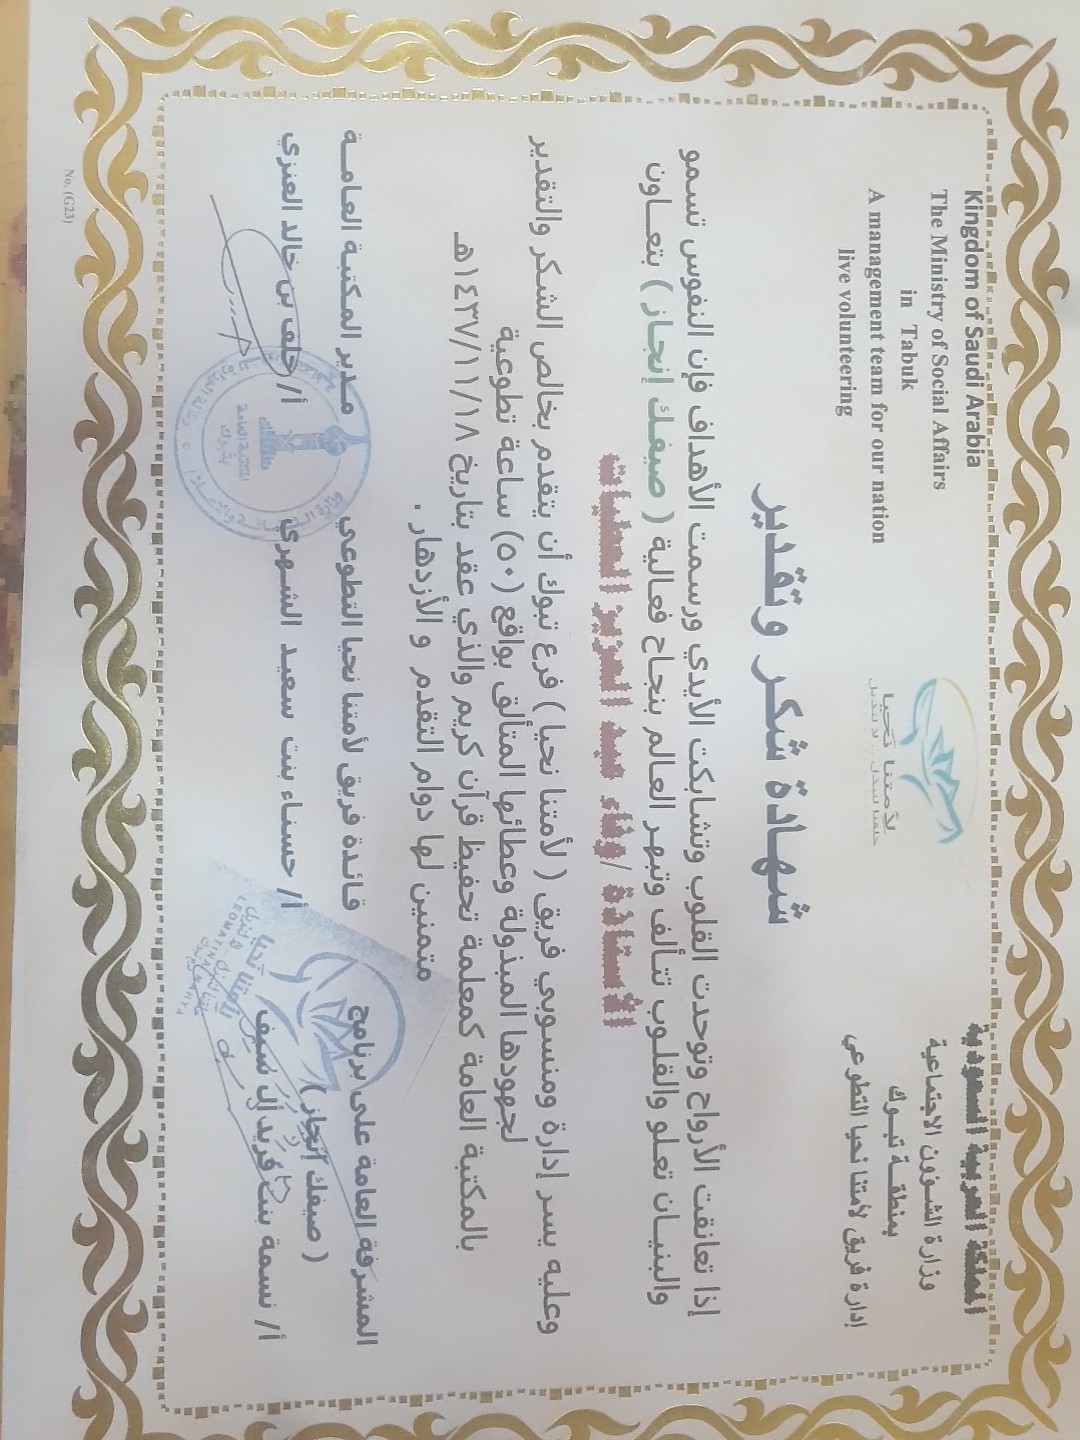 Kingdom of Saudi Arabia
The Ministry of Social Affairs
in Tabuk
A management team for our nation
live volunteering
لأمتنا نحيا
المملكة العربية السعودية
وزارة الشؤون الاجتماعية
بمنطقة تبوك
إدارة فريق لأمتنا نحيا التطوعي
شهادة شكر وتقدير
إذا تعانقت الأرواح وتوحدت القلوب وتشابكت الأيدي ورسمت الأهداف فإن النفوس تسمو
والبنيان تعلو والقلوب تتألف وتبهر العالم بنجاح فعالية ( صيفك إنجاز ) بتعاون
الأستاذة /وفاء عبد العزيز العطيات
وعليه يسر إدارة ومنسوبي فريق ( لأمتنا نحيا ) فرع تبوك أن يتقدم بخالص الشكر والتقدير
لجهودها المبذولة وعطائها المتألق بواقع (٥٠) ساعة تطوعية
بالمكتبة العامة كمعلمة تحفيظ قرآن كريم والذي عقد بتاريخ ١٤٣٧/١١/١٨هـ
متمنين لها دوام التقدم و الأزدهار .
المشرفة العامة على برنامج
( صيفك إنجاز )
أ/ نسمة بنت فريد آل سيف
قائدة فريق لأمتنا نحيا التطوعي
أ/ حسناء بنت سعيد الشهري
مدير المكتبة العامة
أ/ خلف بن خالد العنزي
المكتبة العامة
بتبوك
لأمتنا نحيا
No. (G23)